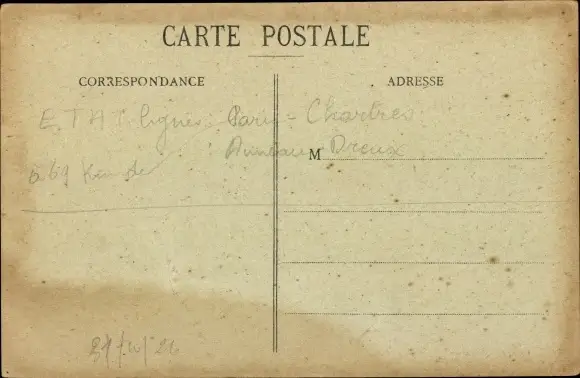 CARTE POSTALE
CORRESPONDANCE
ADRESSE
ETAT lignes: Paris-Chartres
Auneau-Dreux
M
à 69